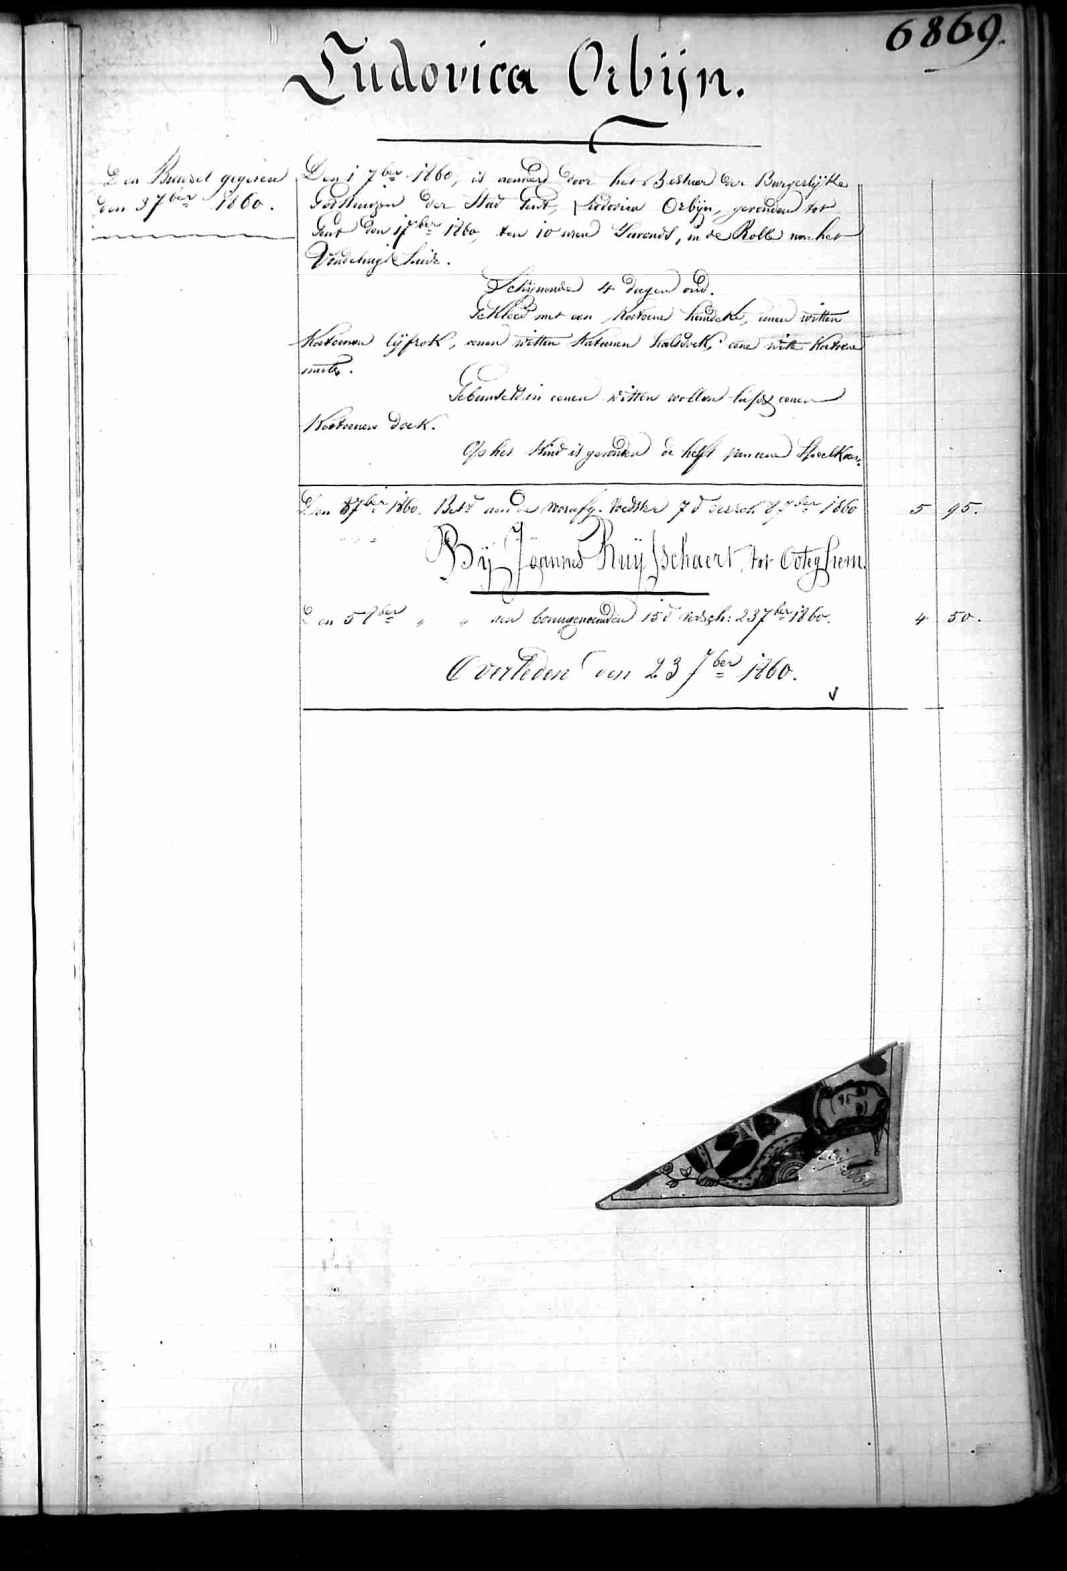 6869.
Ludovica Orbijn.
Den Bundel gegeven
den 3 7ber 1860.
Den 1 7ber 1860, is aenveerd door het Bestuer der Burgerlijke
Godshuizen der Stad Gent, Ludovica Orbijn, gevonden tot
Gent den 1 7ber 1860, ten 10 uren 's avonds, in de Rolle van het
Vondelings huis.
Schijnende 4 dagen oud.
Gekleed met een Kattoene hemdeke, eenen witten
Kattoenen lijfrok, eenen witten Kattoenen halsdoek, eene witte Kattoene
muts.
Gebundeld in eenen witten wollen eenen
Kattoenen doek.
Op het Kind is gevonden de helft van eene Speelkaer.
Den 7ber 1860. Bet. aen de Voedster 7 d versch 7ber 1860 5 95.
Bij Joannes Ruijsschaert, tot Ooteghem.
Den 5 8ber " " aen bovengenoemden 15 d versch: 23 7ber 1860. 4 50.
Overleden den 23 7ber 1860.